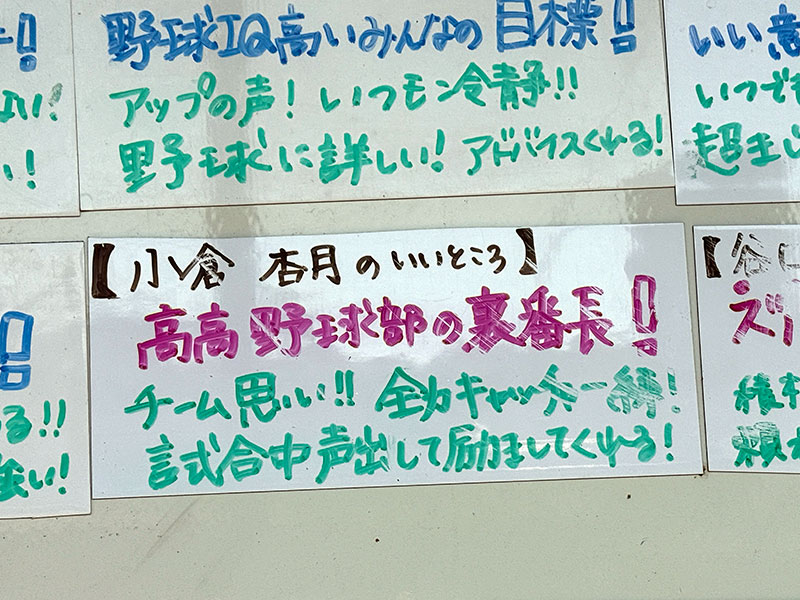 野球IQ高いみんなの目標!!
アップの声! いつモン冷静!!
野球に詳しい! アドバイスくれる!
いい意
いつでも
超まじ
ない!
い!
【小倉 杏月のいいところ】
高高野球部の裏番長!!
チーム思い!! 全力キャッチー
試合中声出して励ましてくれる!
る!!
強い!
【谷口
ズッ
積
頼